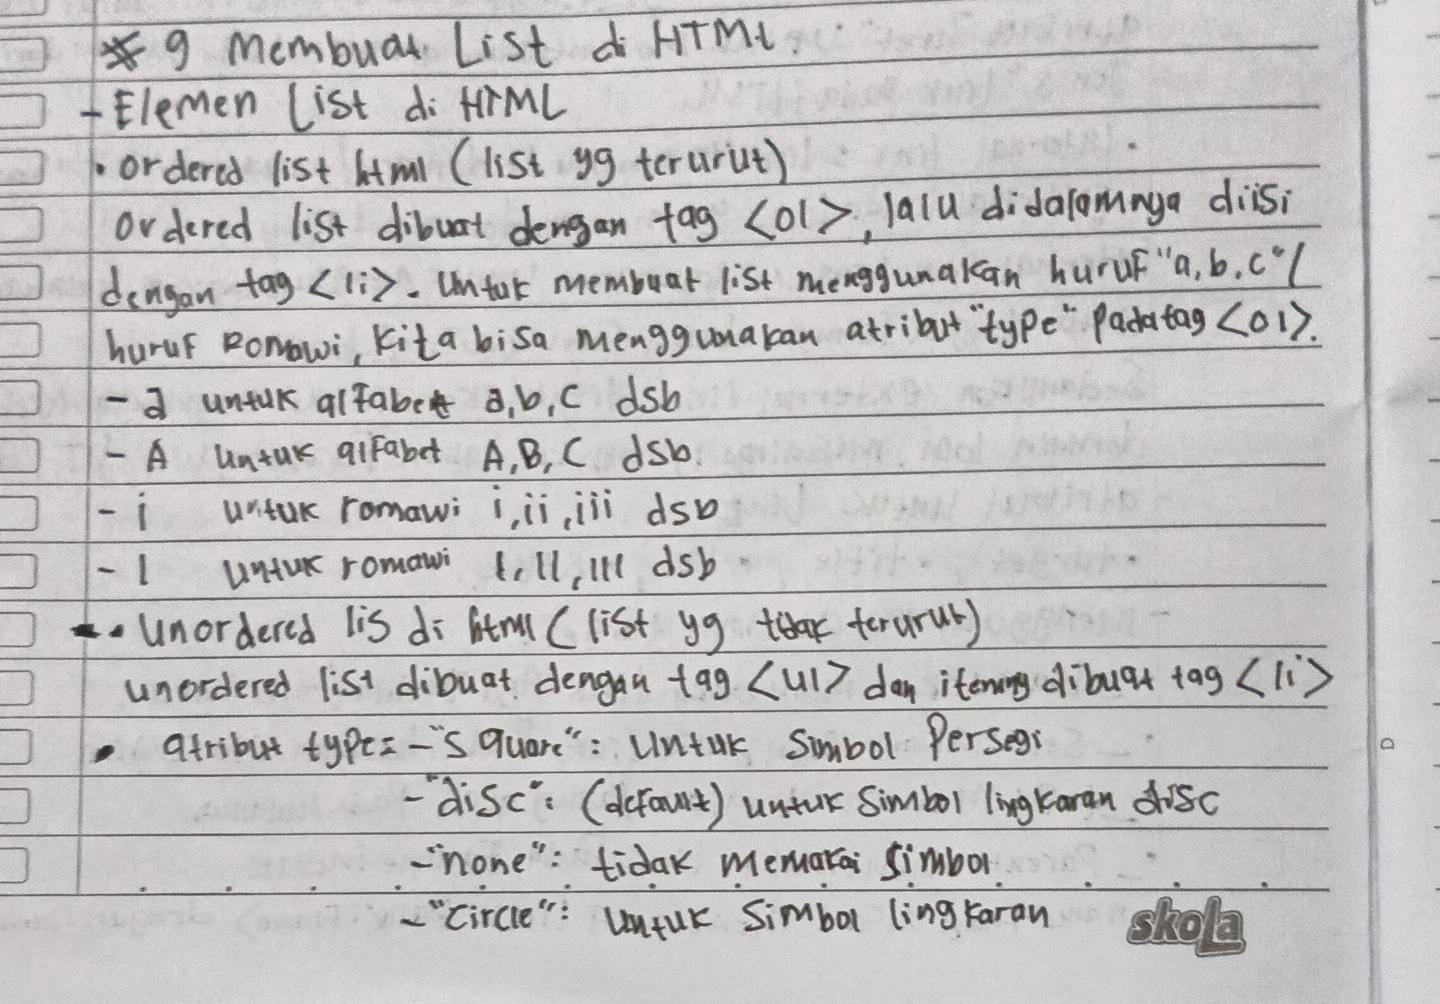 * 9 Membuat List di HTML:
- Elemen List di HTML
• ordered list html (list yg terurut)
ordered list dibuat dengan tag <ol>, lalu didalamnya diisi
dengan tag <li>. Untuk membuat list menggunakan huruf "a, b, c" /
huruf Romawi, kita bisa menggunakan atribut "type" pada tag <ol>.
- a untuk alfabet a, b, c dsb
- A untuk alfabet A, B, C dsb.
- i untuk romawi i, ii, iii dsb
- I untuk romawi I, II, III dsb
• unordered lis di html (list yg tidak terurut)
unordered list dibuat dengan tag <ul> dan itemnya dibuat tag <li>
• atribut type: - "square": Untuk Simbol Persegi
- "disc": (default) untuk Simbol lingkaran disc
- "none": tidak memakai simbol
- "Circle": Untuk Simbol lingkaran
skola